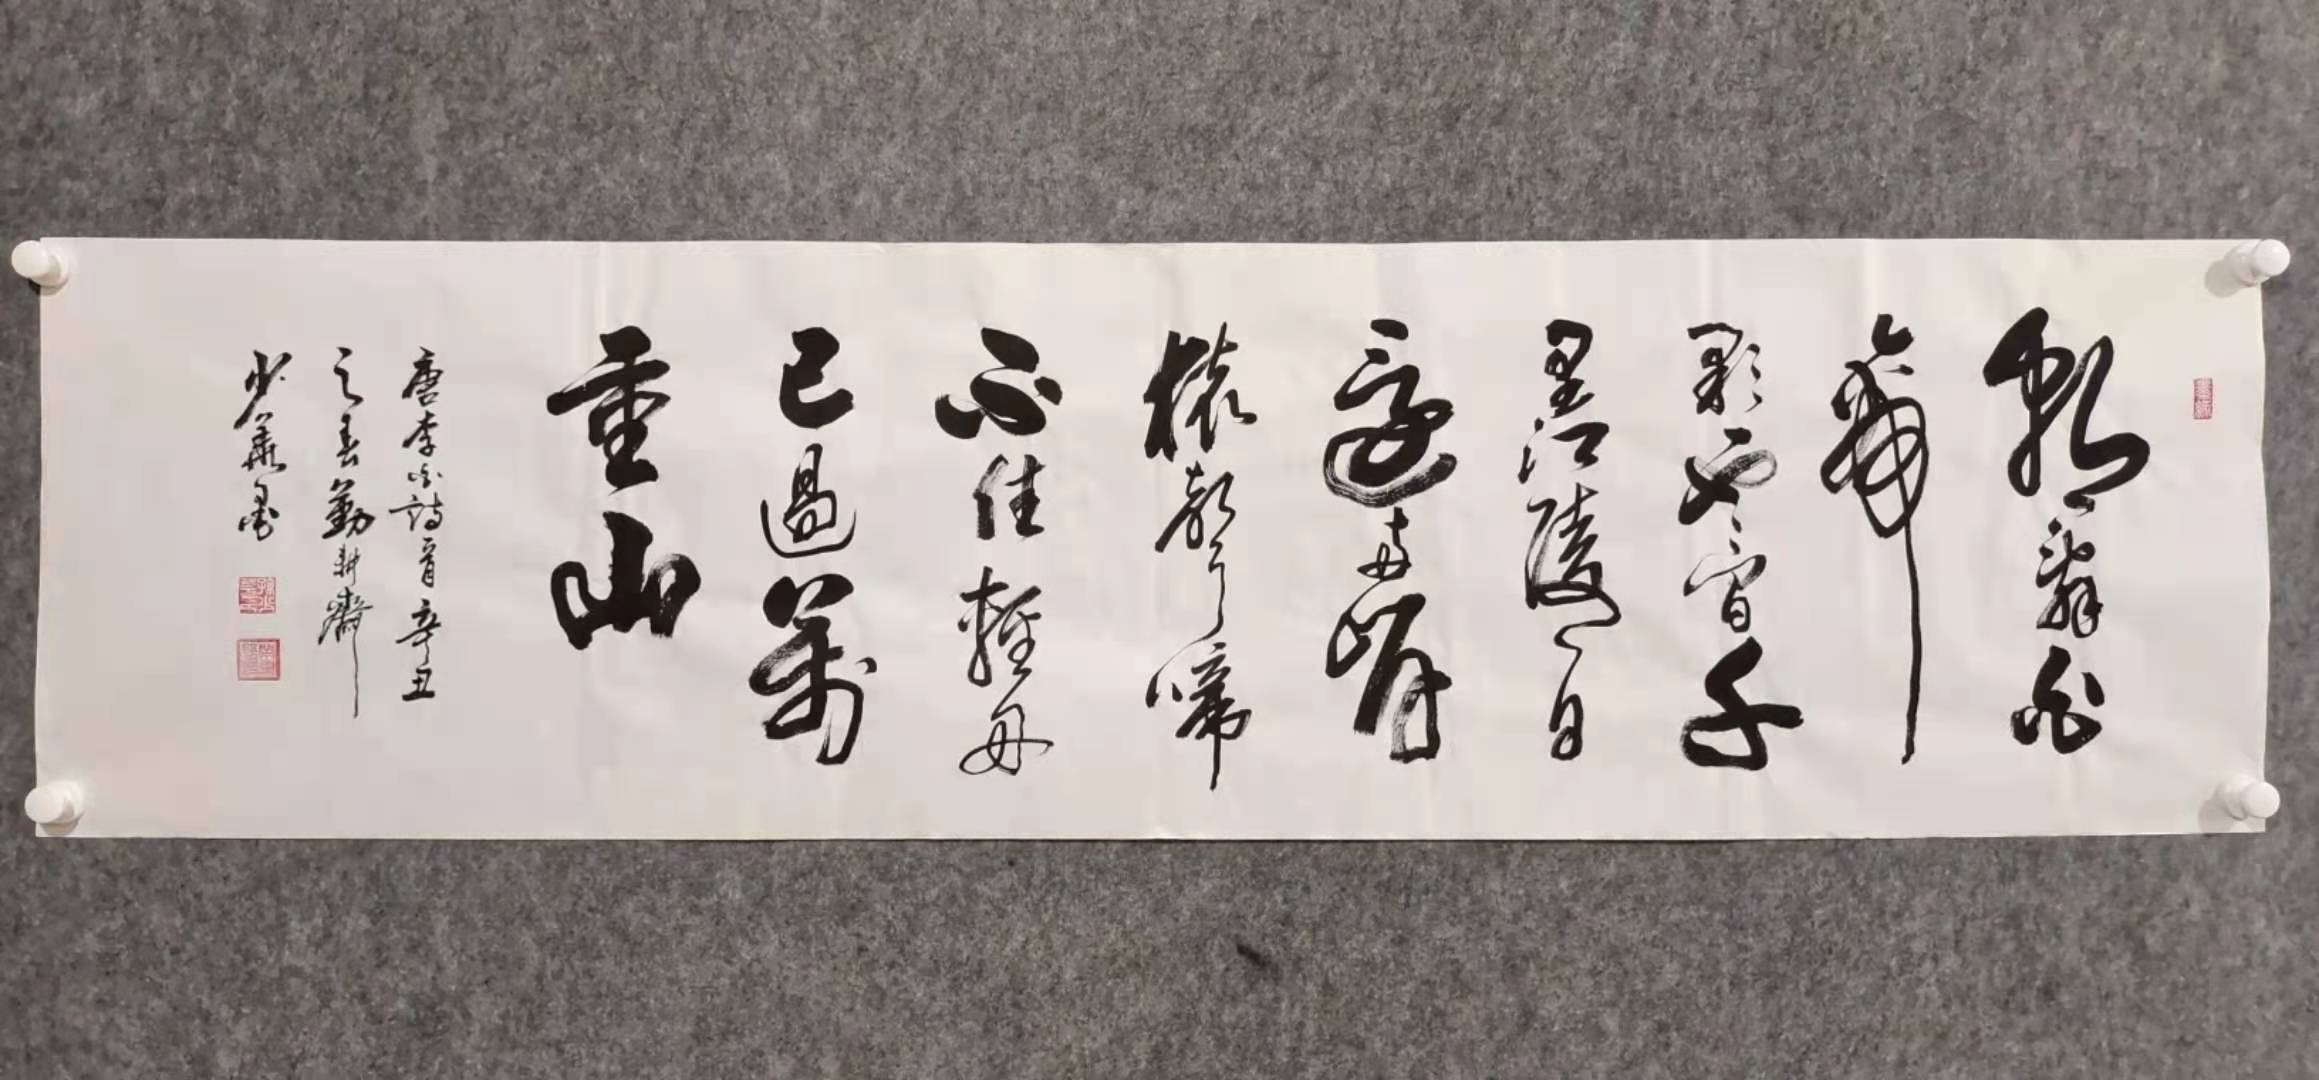 朝辭白
帝
彩雲間千
里江陵一日
還兩岸
猿聲啼
不住輕舟
已過萬
重山
唐李白詩一首 辛丑
之春勤耕齋
少華